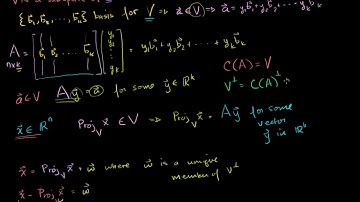 V is a subspace of
{b⃗₁, b⃗₂, ..., b⃗ₖ} basis for V ⇒ a⃗ ∈ V ⇒ a⃗ = y₁b⃗₁ + y₂b⃗₂ + ··· + yₖb⃗ₖ
A n×k = [b⃗₁ b⃗₂ ... b⃗ₖ] [y₁ y₂ ⋮ yₖ] = y₁b⃗₁ + y₂b⃗₂ + ··· + yₖb⃗ₖ
C(A) = V
a⃗ ∈ V A y⃗ = a⃗ for some y⃗ ∈ ℝᵏ V⊥ = C(A)⊥
x⃗ ∈ ℝⁿ Proj_V x⃗ ∈ V ⇒ Proj_V x⃗ = A y⃗ for some vector y⃗ in ℝᵏ
x⃗ = Proj_V x⃗ + w⃗ where w⃗ is a unique member of V⊥
x⃗ - Proj_V x⃗ = w⃗